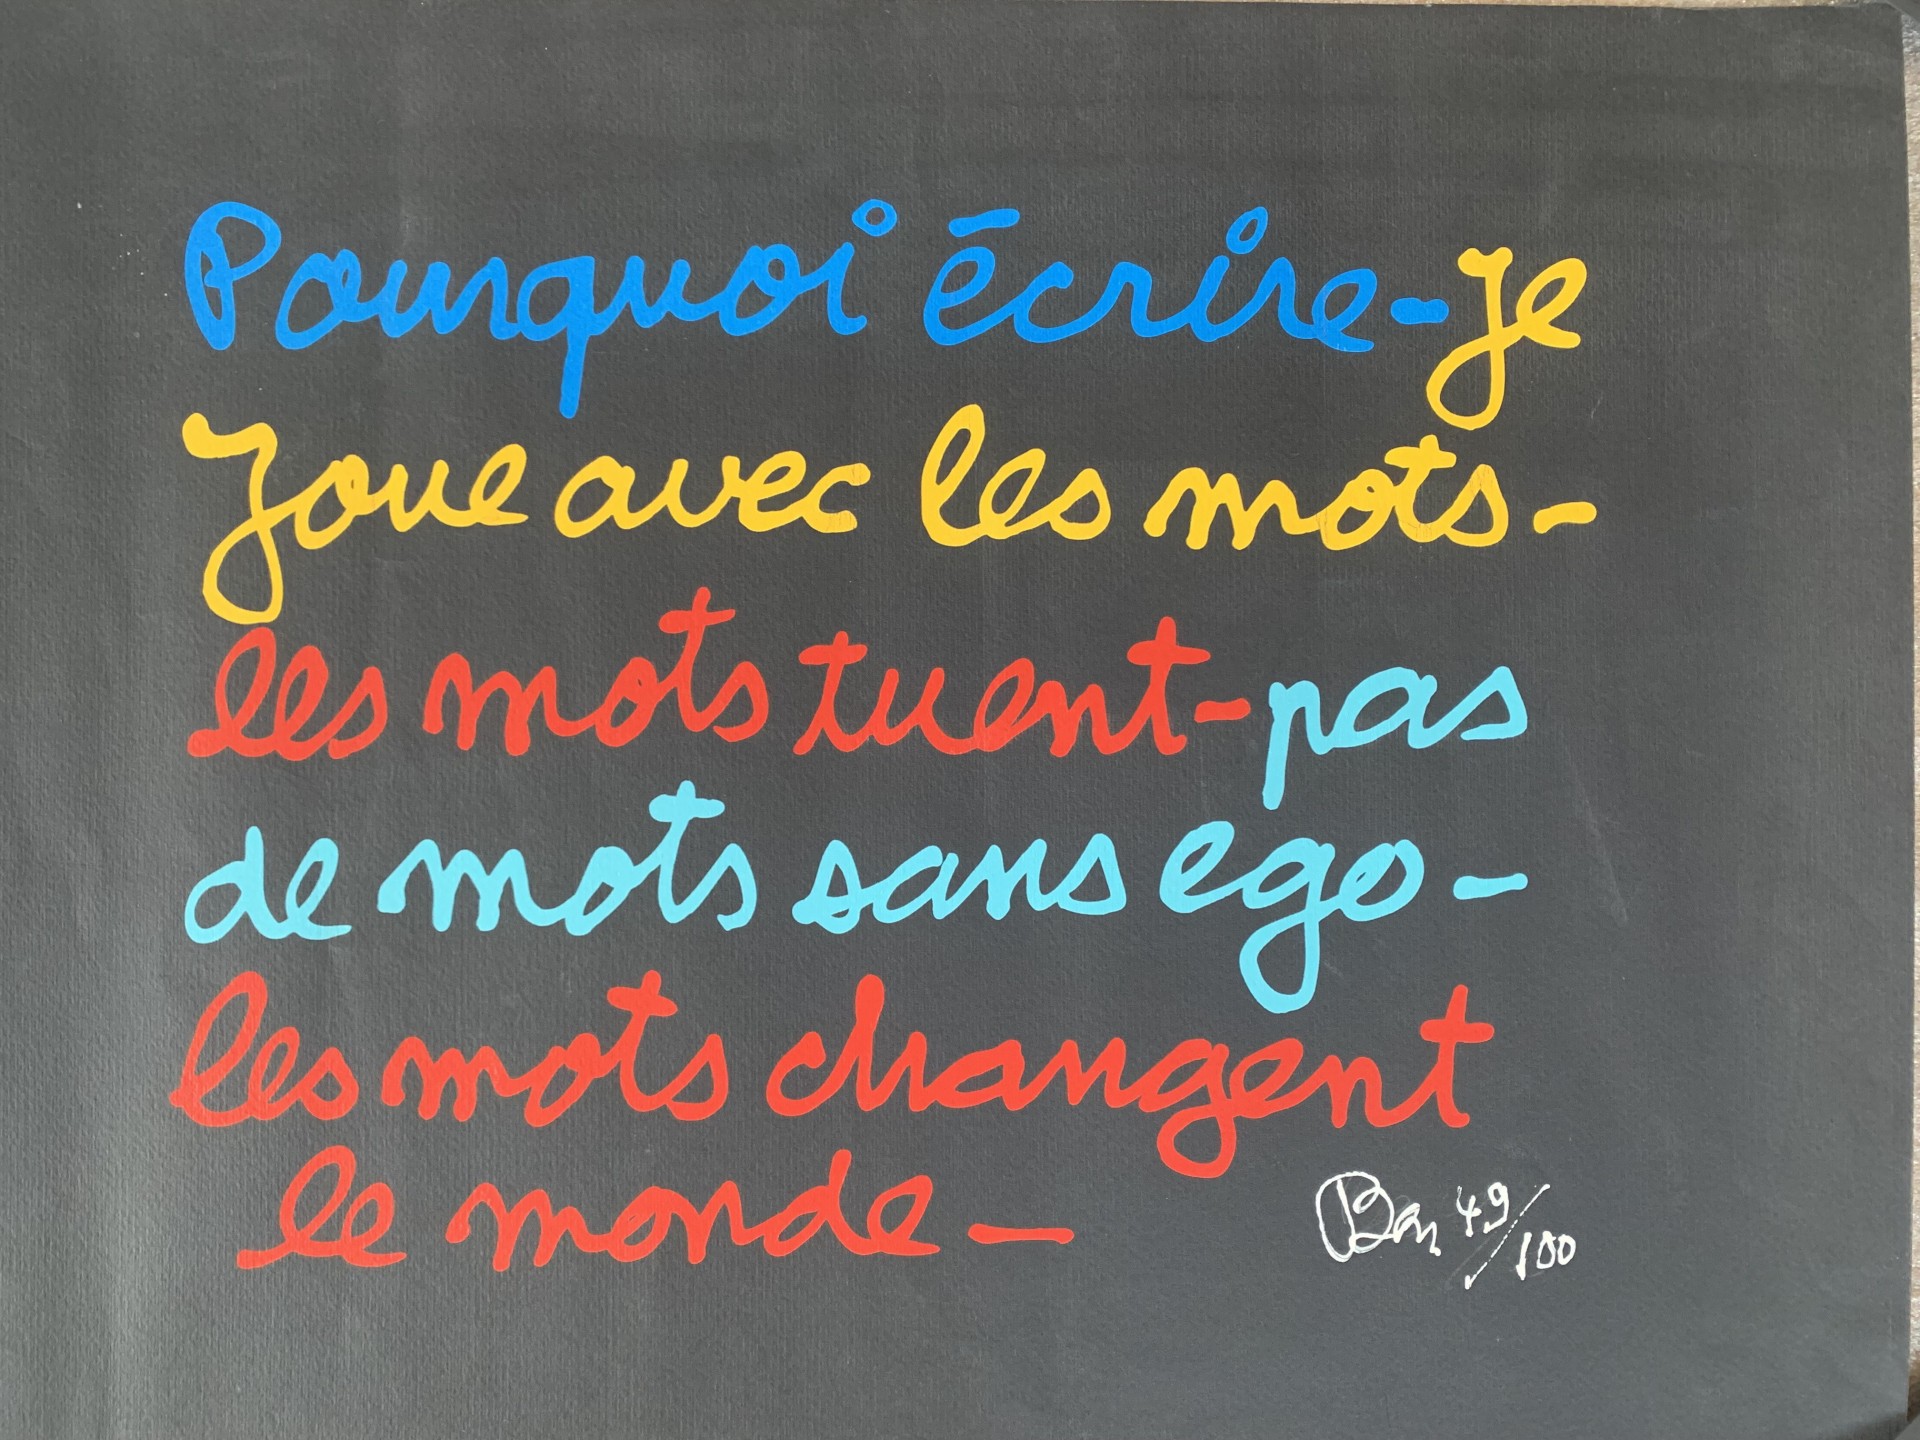 Pourquoi écrire - je
joue avec les mots -
les mots tuent - pas
de mots sans ego -
les mots changent
le monde -
Ben 49/100